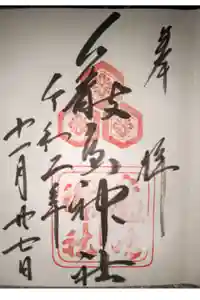 奉拝
厳島神社
令和二年
十一月廿七日